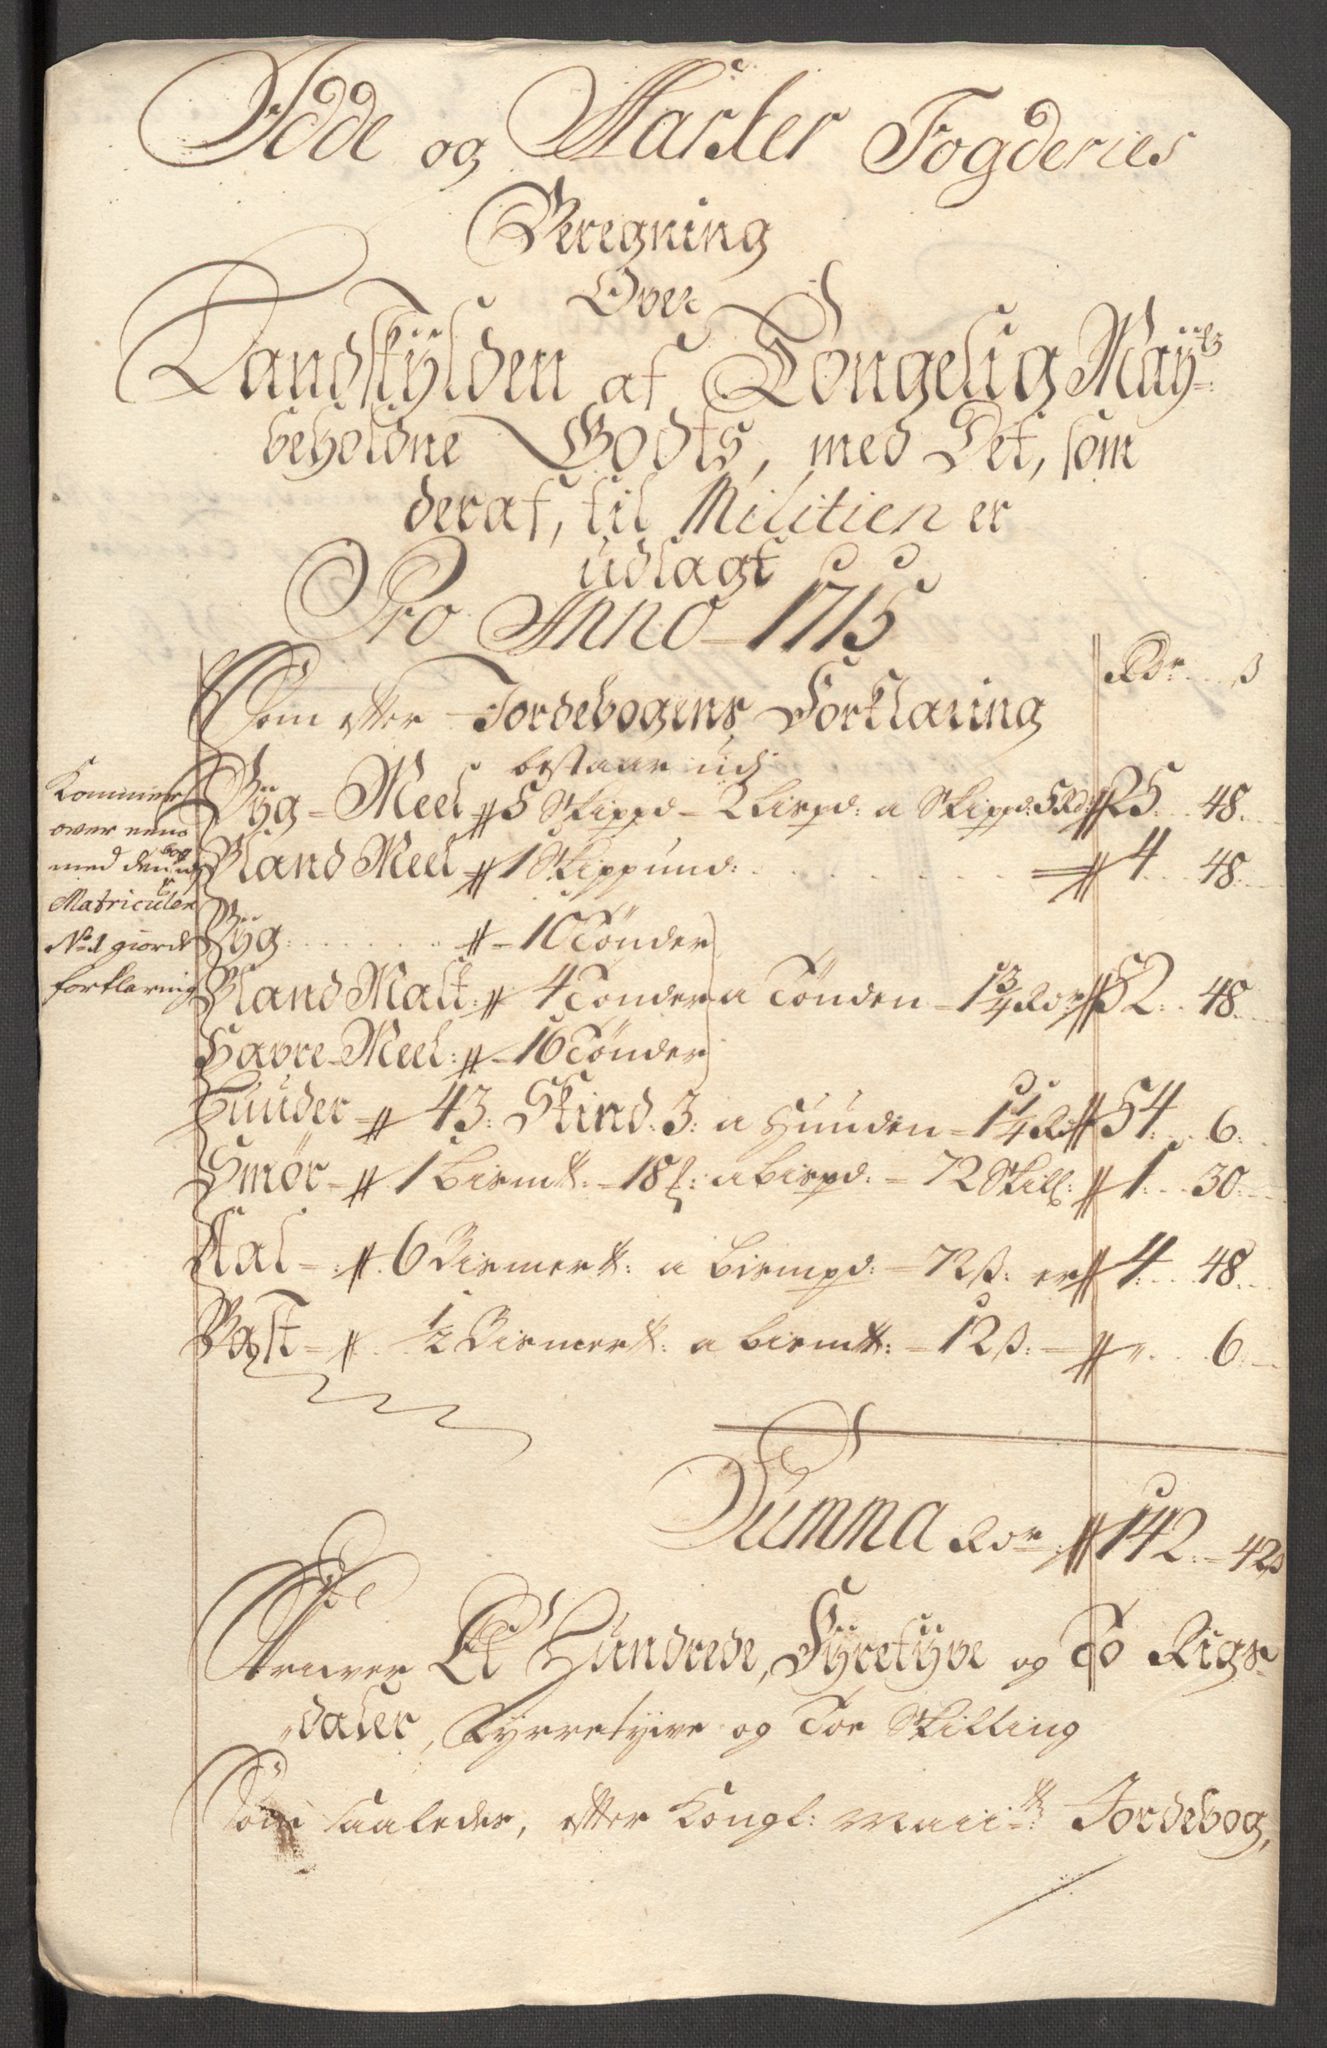 Idde og Marker Fogderies
Beregning
Over
Landskÿlden af Kongelig Maÿ:tz
beholdne Godts, med Det, som
deraf, til Militien er
udlagt
Pro Anno 1715
Rdr ß
Som efter Jordebogens Forklaring
bestaar udj
Bÿg-Meel # 5 Skippd - 2 bispd: a Skippd: 5 Rd # 25 .. 48
Bland Meel # 1 Skippund: # 4 .. 48
Bÿg: # - 10 Tönder
Bland Malt: # 4 Tönder a Tönden - 1 3/4 Rdr # 52 .. 48
Havre-Meel: # - 16 Tönder
Huuder # 43: Skind: 3: a Huuden - 1 1/4 Rd # 54: 6:
Smör - # 1 bismk: - 18 ħ: a bispd: - 72 Skill: # 1: .. 30
Aal -: # 6 Bismerk: a bismpd: - 72 ß: er # 4: .. 48
Vogst - # 1/2 Bismerk: a bismk: - 12 ß: - # " .. 6:
Kommer
over eens
med den
udj
Matriculen
No 1 giorde
forklaring
Summa Rdr # 142: - 42 ß
Et Hundrede, Fÿretÿve og To Rigs-
daler, Fyrretyive og Toe Skilling
Som saaledes, efter Kongl: Maii:tz Jordebog,